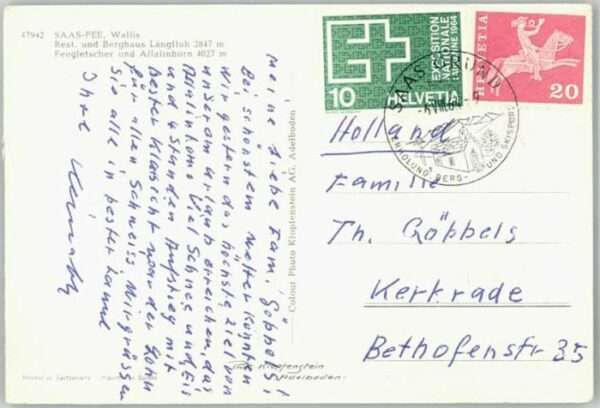 47942 SAAS-FEE, Wallis
Rest. und Berghaus Längfluh 2847 m
Feegletscher und Allalinhorn 4027 m
Meine liebe Fam. Göbbels!
Bei schönstem Wetter konnten
wir gestern das höchste Ziel von
unserem urlaub erreichen, das
Allalinhorn. Viel Schnee und Eis
und 4 Stunden Aufstieg mit
bester Klarsicht war der Lohn
für allen Schweiss. Wir grüssen
Sie alle in bester Laune
Ihre
Colour Photo Klopfenstein AG, Adelboden
EXPOSITION
NATIONALE
LAUSANNE 1964
10 HELVETIA
HELVETIA
20
SAAS-GRUND
ERHOLUNG BERG- UND SKISPORT
Holland
Familie
Th. Göbbels
Kerkrade
Bethofenstr 35
Klopfenstein
Adelboden
Printed in Switzerland